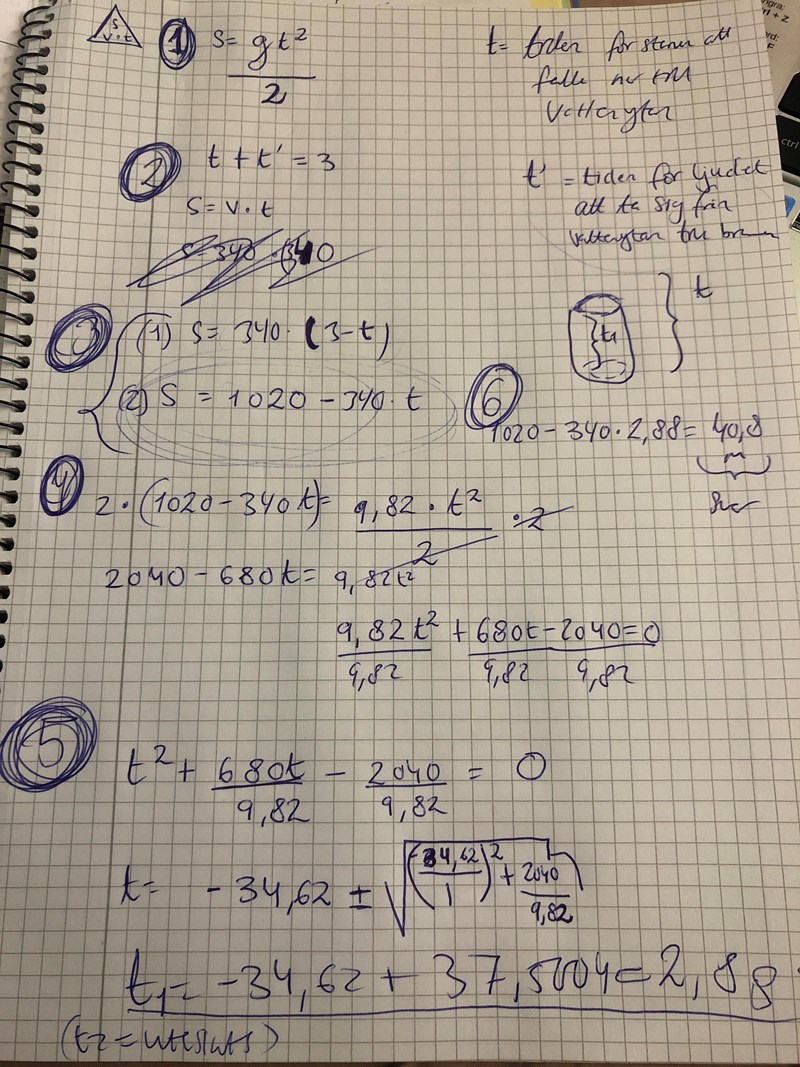 S
v·t
1 S = gt²
2
t = tiden för stenen att
falla ner till
vattenytan
2 t + t' = 3
S = v·t
t' = tiden för ljudet
att ta sig från
vattenytan till
3 (1) S = 340·(3-t)
(2) S = 1020 - 340·t
t
6
1020 - 340·2,88 = 40,8
m
Svar
4 2·(1020-340t) = 9,82·t² ·2
2
2040 - 680t = 9,82t²
9,82t² + 680t - 2040 = 0
9,82 9,82 9,82
5
t² + 680t - 2040 = 0
9,82 9,82
t = -34,62 ± √(34,62)² + 2040
1 9,82
t₁ = -34,62 + 37,5004 = 2,88
ctrl